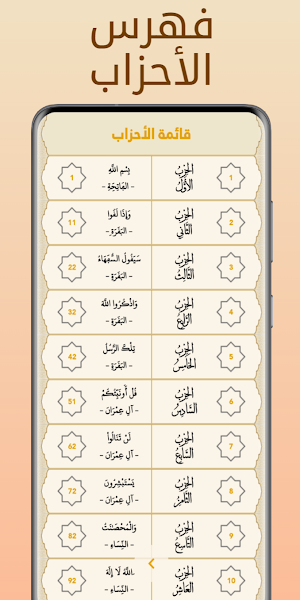 فهرس
الأحزاب
قائمة الأحزاب
1 الحِزْبُ الأَوَّلُ بِسْمِ اللَّهِ - الفَاتِحَةِ - 1
2 الحِزْبُ الثَّانِي وَإِذَا لَقُوا - البَقَرَةِ - 11
3 الحِزْبُ الثَّالِثُ سَيَقُولُ السُّفَهَاءُ - البَقَرَةِ - 22
4 الحِزْبُ الرَّابِعُ وَاذْكُرُوا اللَّهَ - البَقَرَةِ - 32
5 الحِزْبُ الخَامِسُ تِلْكَ الرُّسُلُ - البَقَرَةِ - 42
6 الحِزْبُ السَّادِسُ قُلْ أَؤُنَبِّئُكُمْ - آلِ عِمْرَانَ - 51
7 الحِزْبُ السَّابِعُ لَنْ تَنَالُوا - آلِ عِمْرَانَ - 62
8 الحِزْبُ الثَّامِنُ يَسْتَبْشِرُونَ - آلِ عِمْرَانَ - 72
9 الحِزْبُ التَّاسِعُ وَالْمُحْصَنَتُ - النِّسَاءِ - 82
10 الحِزْبُ العَاشِرُ اللَّهُ لَا إِلَهَ - النِّسَاءِ - 92